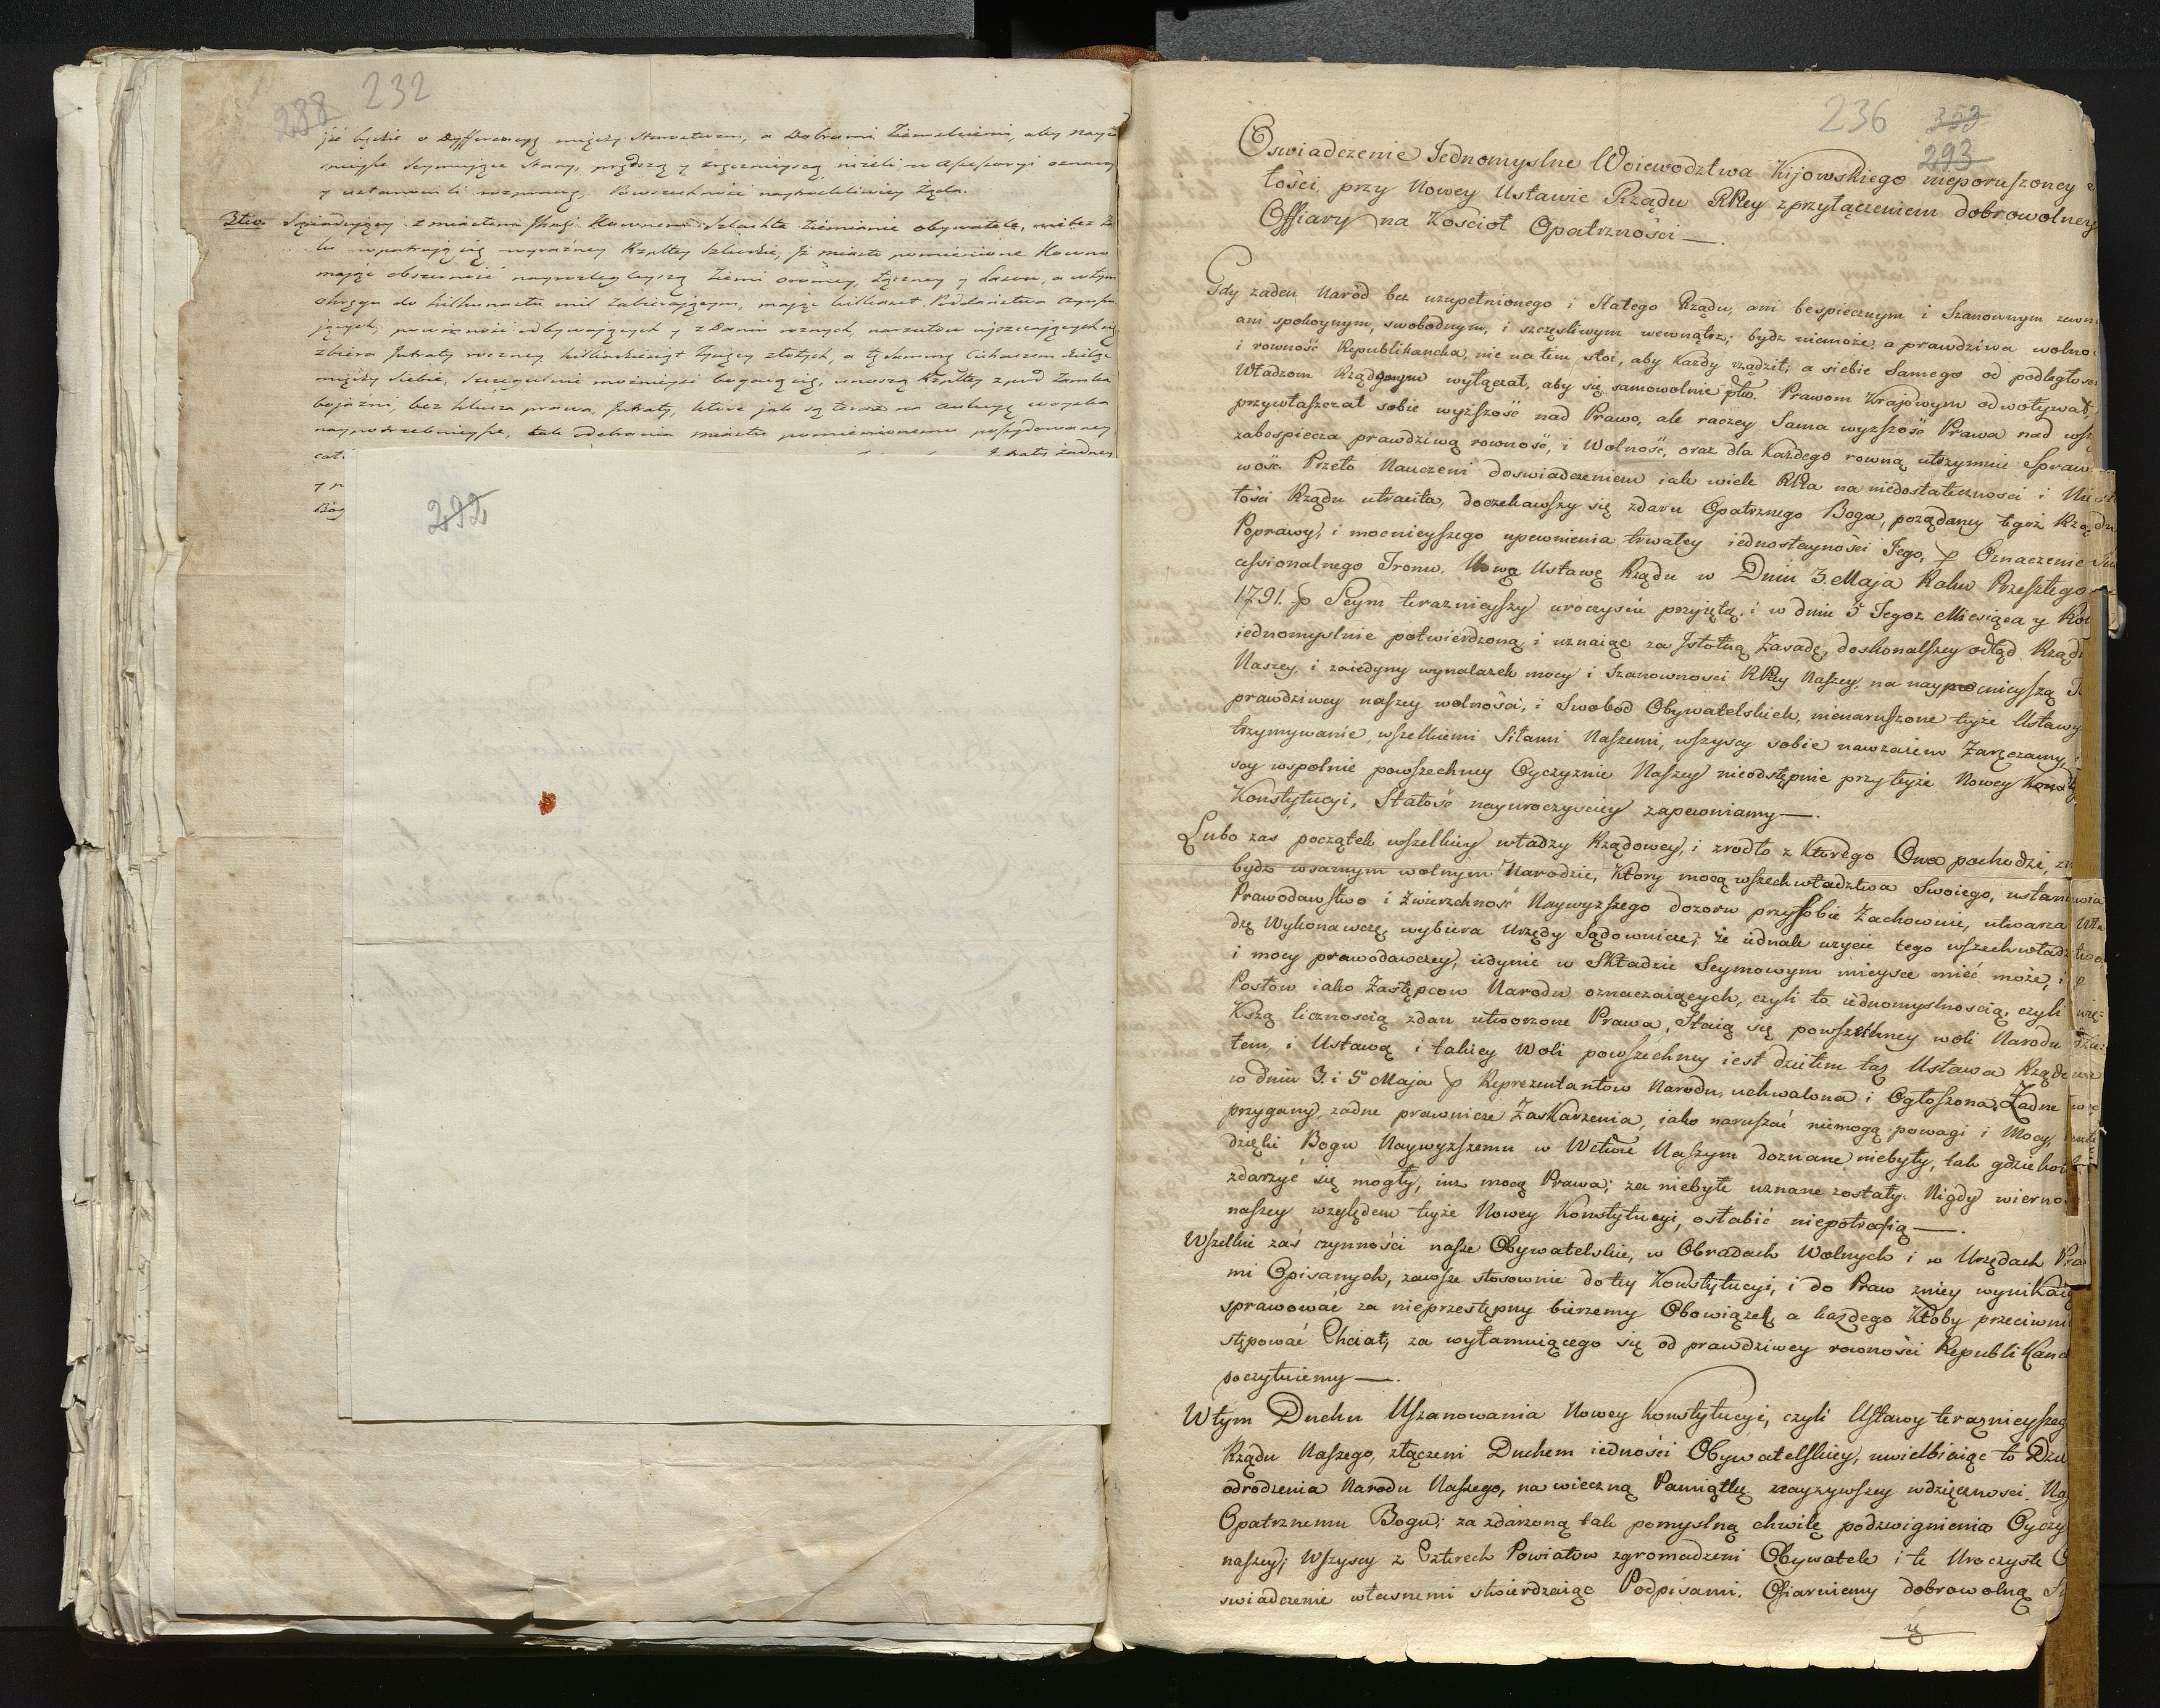 288 232
jść będzie o Dyfferencyę między Starostwem, a Dobrami Ziemskiemi, aby nayia
śnieysze Seymuiące Stany, prędszą y zręcznieyszą niżeli w Assessoryi oznaczy
y ustanowili rozprawę, Powszechność naytroskliwiey żąda.
3tio. Sąsiadujący z miastem Kownem Szlachta Ziemianie obywatele, nie bez ża
lu wpatrują się wyraźney Krzpltey Szkodzie, Jż miasto pomienione Kowno
mając obszerność nayrozlegleyszą Ziemi orómey, Łączney y Lasow, a w tym
okręgu do kilkunastu mil zabierającym, mając kilkaset Poddaństwa czynszu
jących, powinność odbywających y z Danin rożnych, narzutów uiszczających się
zbiera Jntraty roczney kilkadziesiąt Tysięcy złotych, a tę Summę cichaczem dzieląc
między siebie, szczegulnie możnieysi bogacą się, unoszą Krzpltey z pod Zamku
bojaźni, bez klucza prawa, Jntraty, które jak są teraz na aukcyę woyska
naypotrzebnieysze, tak odebrania miastu pomienionemu possydowaney
cał
y
Bog
292
236 353
293
Oswiadczenie Jednomyslne Woiewodztwa Kijowskiego nieporuszoney
tości, przy Nowey Ustawie Rządu RPley z przyłączeniem dobrowolney
Offiary na Kościoł Opatrzności —.
Gdy żaden Naród bez uzupełnionego i Stałego Rządu, ani bespiecznym i Szanownym zewn
ani spokoynym, swobodnym, i szczęsliwym wewnątrz; bydz niemoże, a prawdziwa wolno
i rowność Republikancka, nie na tim stoi, aby Każdy rządził; a siebie Samego od podległosci
Władzom Rządowym wyłączał, aby się samowolnie pko. Prawom Krajowym odwoływał,
przywłaszczał sobie wyższość nad Prawo, ale raczey Sama wyższość Prawa nad wsz
zabespiecza prawdziwą rowność, i Wolność, oraz dla Każdego rowną utrzymuie Spraw
wość. Przeto Nauczeni doswiadczeniem iak wiele RPta na niedostatecznosci i Nie
tości Rządu utraciła, doczekawszy się zdaru Opatrznego Boga, pożądaney tegoż Rządu
Poprawy, i mocnieyszego upewnienia trwałey iednostayności Jego, p Oznaczenie Suk
cessionalnego Tronu, Nową Ustawę Rządu w Dniu 3. Maja Roku Przeszłego
1791. p Seym teraznieyszy uroczyscie przyiętą, i w dniu 5 Tegoz Miesiąca y Rok
iednomyslnie potwierdzoną i uznaiąc za Jstotną Zasadę, doskonalszey odtąd Rządu
Naszey, i zaiedyny wynalazek mocy i Szanownosci RPley Naszey, na naymocnieyszą
prawdziwey naszey wolności, i Swobód Obywatelskich, nienaruszone teyże Ustawy
trzymywanie, wszelkiemi Siłami Naszemi, wszyscy sobie nawzaiem Zaręczamy,
scy wspolnie powszechney Oyczyznie Naszey nieodstępnie przy teyże Nowey
Konstytucyi, Stałość nayuroczysciey zapewniamy —.
Lubo zaś początek wszelkiey władzy Rządowey, i zrodło z Którego Ona pochodzi, zn
bydz w samym wolnym Narodzie, Który mocą wszechwładztwa Swoiego, ustanowia
Prawodawstwo i Zwierzchność Naywyzszego dozoru przy sobie Zachowuie, utwarza Wła
dzę Wykonawczę, wybiera Urzędy Sądownicze; że iednak uzycie tego wszechwładztwa
i mocy prawodawczey, iedynie w Składzie Seymowym mieysce mieć może, i p
Posłow iako Zastępcow Narodu oznaczaiących, czyli to iednomyslnoscią, czyli więk-
Kszą licznoscią zdan utworzone Prawa, Staią się powszechney woli Narodu dzie-
łem, i Ustawą i takiey Woli powszechney iest dziełem taż Ustawa Rządowa
w dniu 3. i 5o Maja p Reprezentantow Narodu, uchwalona i Ogłoszona. Żadne więc
przygany, żadne prawnicze Zaskarżenia, iako naruszać niemogą powagi i Mocy,
dzięki Bogu Naywyzszemu w Wctwie Naszym doznane niebyły, tak gdziekol
zdarzyć się mogły, iuz mocą Prawa; za niebyłe uznane zostały. Nigdy wierno
naszey względem teyże Nowey Konstytucyi, osłabić niepotrafią —.
Wszelkie zaś czynności nasze Obywatelskie, w Obradach Wolnych i w Urzędach Pra
mi Opisanych, zawsze stosownie do tey Konstytucyi, i do Praw zniey wynikaią
sprawować za nieprzestępny bierzemy Obowiązek, a każdego Ktoby przeciwni
stępować Chciał; za wyłamuiącego się od prawdziwey rowności Republikanc
poczytuiemy —.
W tym Duchu Uszanowania Nowey Konstytucyi, czyli Ustawy teraznieyszeg
Rządu Naszego, złączeni Duchem iedności Obywatelskiey, uwielbiaiąc to Dzie
odrodzenia Narodu Naszego, na wieczną Pamiątkę nayzywszey wdzięcznosci Nay
Opatrznemu Bogu; za zdarzoną tak pomyslną chwilę podzwignienia Oyczy
naszey; Wszyscy z Czterech Powiatow zgromadzeni Obywatele i te Uroczyste O
swiadczenie własnemi stwierdzaiąc Podpisami, Ofiaruiemy dobrowolną